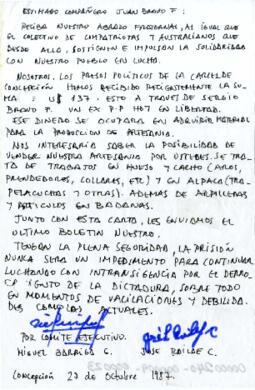 ESTIMADO COMPAÑERO JUAN BRAVO F:
RECIBA NUESTRO ABRAZO FRATERNAL, AL IGUAL QUE
EL COLECTIVO DE COMPATRIOTAS Y AUSTRALIANOS QUE
DESDE ALLA, SOSTIENEN E IMPULSAN LA SOLIDARIDAD
CON NUESTRO PUEBLO EN LUCHA.
NOSOTROS, LOS PRESOS POLITICOS DE LA CARCEL DE
CONCEPCION HEMOS RECIBIDO RECIENTEMENTE LA SU-
MA: U$ 137. ESTO A TRAVES DE SERGIO
BRAVO F. UN EX P.P. HOY EN LIBERTAD.
ESE DINERO SE OCUPARA EN ADQUIRIR MATERIAL
PARA LA PRODUCCION DE ARTESANIA.
NOS INTERESARIA SABER LA POSIBILIDAD DE
VENDER NUESTRA ARTESANIA POR USTEDES. SE TRA-
TA DE TRABAJOS EN HUESO Y CACHO (AROS,
PRENDEDORES, COLLARES, ETC) Y EN ALPACA (TRA-
PELACUCHAS Y OTRAS). ADEMAS DE ARPILLERAS
Y ARTICULOS EN BADANAS.
JUNTO CON ESTA CARTA, LES ENVIAMOS EL
ULTIMO BOLETIN NUESTRO.
TENGAN LA PLENA SEGURIDAD, LA PRISIÓN
NUNCA SERA UN IMPEDIMENTO PARA CONTINUAR
LUCHANDO CON INTRANSIGENCIA POR EL DERRO-
CAMIENTO DE LA DICTADURA, SOBRE TODO
EN MOMENTOS DE VACILACIONES Y DEBILIDA-
DES COMO LOS ACTUALES.
POR COMITE EJECUTIVO.
MIGUEL BARRIGA G. JOSE
CONCEPCION 23 de Octubre 1987.